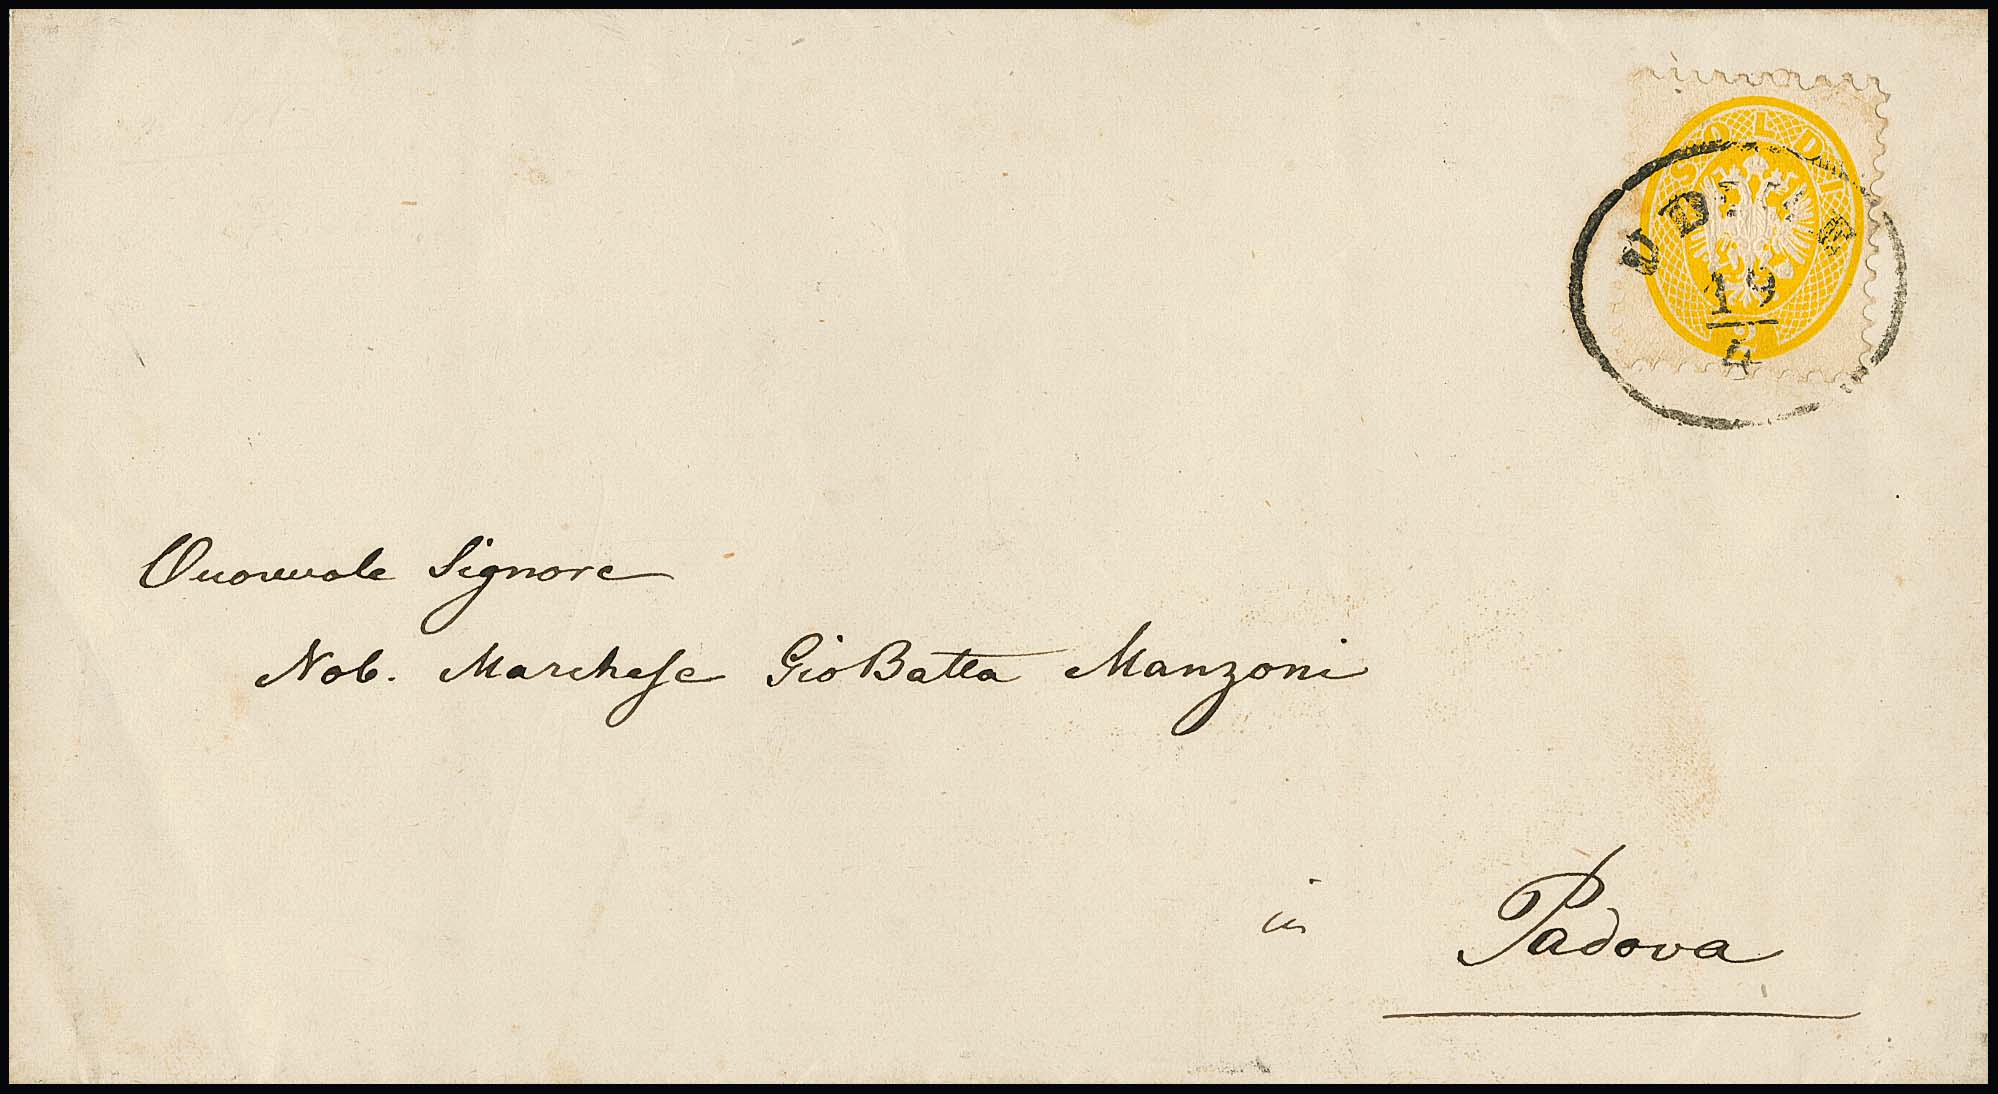 SOLDI
2
UDINE
19
4
Onorevole Signore
Nob. Marchese Gio Batta Manzoni
in
Padova